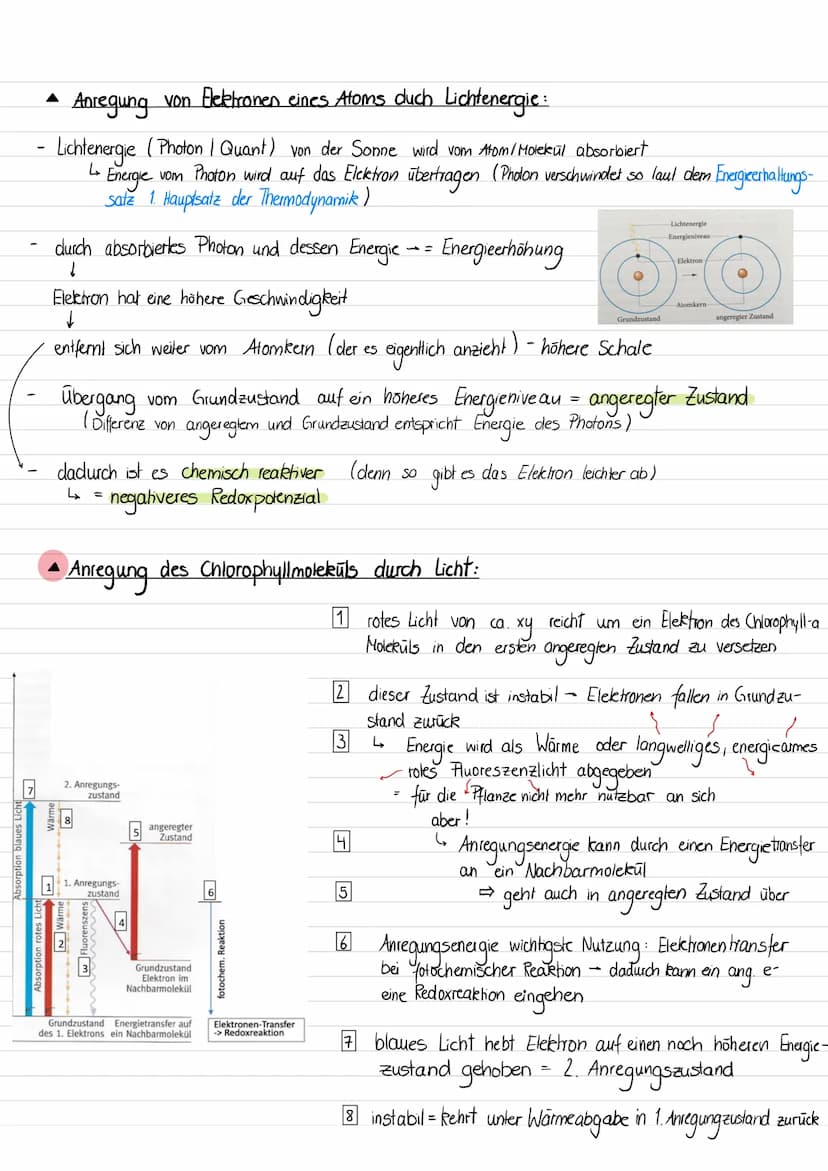 ▲ Anregung von Elektronen eines Atoms duch Lichtenergie:
- Lichtenergie (Photon | Quant) von der Sonne wird vom Atom/Molekül absorbiert
↳ Energie vom Photon wird auf das Elektron übertragen (Photon verschwindet so laut dem Energieerhaltungs-
satz 1. Hauptsatz der Thermodynamik)
- durch absorbiertes Photon und dessen Energie → = Energieerhöhung
↓
Elektron hat eine höhere Geschwindigkeit
↓
entfernt sich weiter vom Atomkern (der es eigentlich anzieht) - höhere Schale
Lichtenergie
Energieniveau
Elektron
→
Atomkern
Grundzustand
angeregter Zustand
- Übergang vom Grundzustand auf ein höheres Energieniveau = angeregter Zustand
(Differenz von angeregtem und Grundzustand entspricht Energie des Photons)
- dadurch ist es chemisch reaktiver (denn so gibt es das Elektron leichter ab)
↳ = negativeres Redoxpotenzial
▲ Anregung des Chlorophyllmoleküls durch Licht:
1 rotes Licht von ca. xy reicht um ein Elektron des Chlorophyll-a
Moleküls in den ersten angeregten Zustand zu versetzen
2 dieser Zustand ist instabil → Elektronen fallen in Grundzu-
stand zurück
3 ↳ Energie wird als Wärme oder langwelliges, energieärmes
rotes Fluoreszenzlicht abgegeben
= für die Pflanze nicht mehr nutzbar an sich
aber!
4 ↳ Anregungsenergie kann durch einen Energietransfer
an ein Nachbarmolekül
5 ⇒ geht auch in angeregten Zustand über
6 Anregungsenergie wichtigste Nutzung: Elektronentransfer
bei fotochemischer Reaktion → dadurch kann ein ang. e-
eine Redoxreaktion eingehen
7 blaues Licht hebt Elektron auf einen noch höheren Energie-
zustand gehoben = 2. Anregungszustand
8 instabil = kehrt unter Wärmeabgabe in 1. Anregungzustand zurück
7
2. Anregungs-
zustand
Absorption blaues Licht
Wärme
8
5
angeregter
Zustand
1
1. Anregungs-
zustand
6
Absorption rotes Licht
Wärme
2
Fluoreszens
3
4
fotochem. Reaktion
Grundzustand
Elektron im
Nachbarmolekül
Grundzustand
des 1. Elektrons
Energietransfer auf
ein Nachbarmolekül
Elektronen-Transfer
-> Redoxreaktion